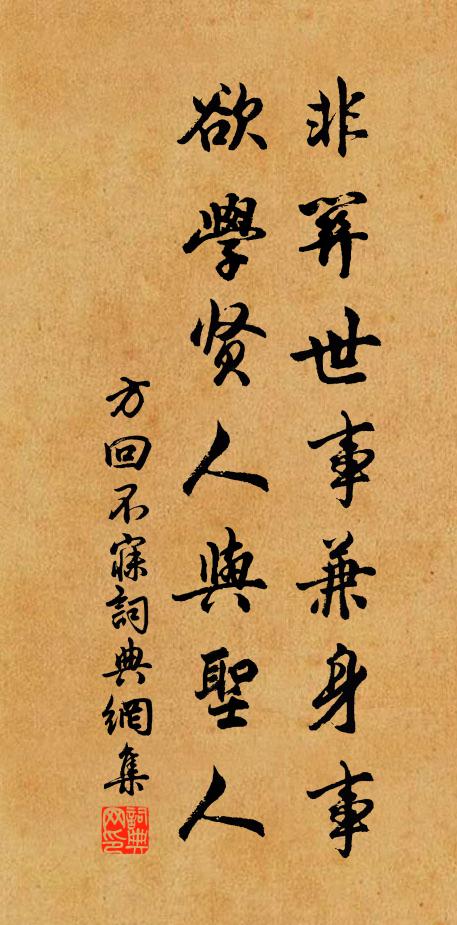 非關世事兼身事
欲學贤人與聖人
方回不寐詞典網集
詞典网印